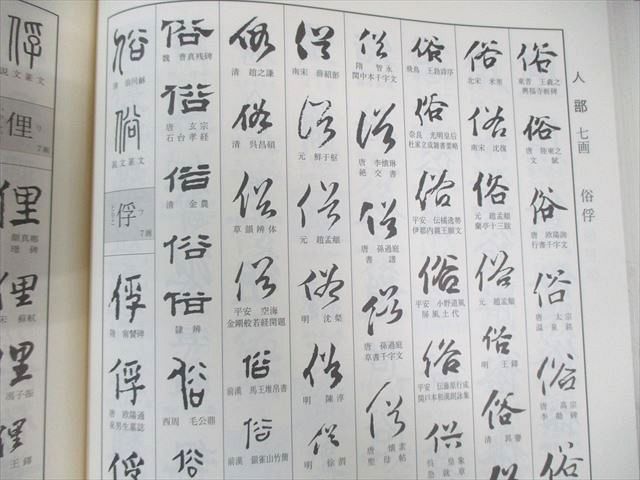 人部 七画 俗俘
俗
東晋 王羲之
興福寺断碑
俗
唐 陸柬之
文賦
俗
唐 欧陽詢
行書千字文
俗
唐 太宗
温泉銘
俗
唐 高宗
李勣碑
俗
北宋 米芾
俗
南宋 沈復
俗
元 趙孟頫
蘭亭十三跋
俗
元 趙孟頫
俗
明 王鐸
俗
清
俗
飛鳥 王勃詩序
俗
奈良 光明皇后
杜家立成雑書要略
俗
平安 伝橘逸勢
伊都内親王願文
俗
平安 小野道風
屏風土代
俗
平安 伝藤原行成
関戸本和漢朗詠集
俗
呉 皇象
急就章
俗
隋 智永
関中本千字文
俗
唐 李懐琳
絶交書
俗
唐 孫過庭
書譜
俗
唐 孫過庭
草書千字文
俗
唐 懐素
聖母帖
俗
南宋 薛紹彭
俗
元 鮮于枢
俗
元 趙孟頫
俗
明 沈粲
俗
明 陳淳
俗
明 徐渭
俗
清 趙之謙
俗
清 呉昌碩
俗
草韻辨体
俗
平安 空海
金剛般若経開題
俗
前漢 馬王堆帛書
俗
前漢 銀雀山竹簡
俗
魏 曹真残碑
俗
唐 玄宗
石台孝経
俗
清 金農
俗
俗
隷辨
俗
西周 毛公鼎
俗
俗
俗
説文篆文
俘
フ
7画
俘
隋 常醜奴
俘
唐 欧陽通
泉男生墓誌
俘
俘
説文篆文
俚
リ
7画
俚
顔真卿
俚
宋 蘇軾
俚
馮子振
俚
王鐸